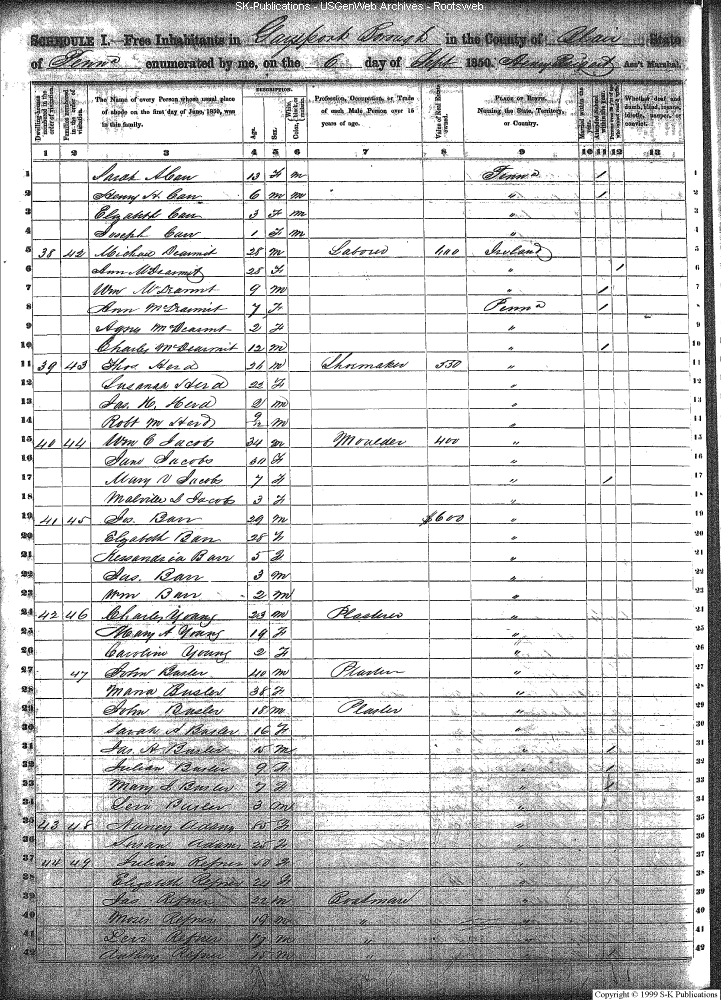 SK-Publications - USGenWeb Archives - Rootsweb
SCHEDULE I.—Free Inhabitants in Gaysport Borough in the County of Blair State
of Penna enumerated by me, on the 6 day of Sept 1850. Henry Ass't Marshal.
DESCRIPTION.
The Name of every Person whose usual place of abode on the first day of June, 1850, was in this family.
Age.
Sex.
Profession, Occupation, or Trade of each Male Person over 15 years of age.
Value of Real Estate owned.
PLACE OF BIRTH. Naming the State, Territory, or Country.
Whether deaf and dumb, blind, insane, idiotic, pauper, or convict.
1 2 3 4 5 6 7 8 9 10 11 12 13
1 Sarah A Carr 13 F m Penna 1 1
2 Henry H. Carr 6 m m " 1 2
3 Elizabeth Carr 3 F m " 3
4 Joseph Carr 1 F m " 4
5 38 42 Michael Dearmit 28 m Laborer 400 Ireland 5
6 Ann McDearmit 28 F " 1 6
7 Wm McDearmit 9 m " 1 7
8 Ann McDearmit 7 F Penna 1 8
9 McDearmit 2 F " 9
10 Charles McDearmit 12 m " 1 10
11 39 43 Thos Herd 26 m Shoemaker 550 " 11
12 Susanah Herd 22 F " 12
13 Jas. K. Herd 2 m " 13
14 Robt M Herd 9/12 m " 14
15 40 44 Wm C Jacobs 34 m Moulder 400 " 15
16 Jane Jacobs 30 F " 16
17 Mary V Jacobs 7 F " 1 17
18 S Jacobs 3 F " 18
19 41 45 Jos. Barr 29 m $600 " 19
20 Elizabeth Barr 28 F " 20
21 Barr 5 F " 21
22 Jas. Barr 3 m " 22
23 Wm Barr 2 m " 23
24 42 46 Charles Young 23 m Plasterer " 24
25 Mary A Young 19 F " 25
26 Caroline Young 2 F " 26
27 47 John Busler 40 m Plaster " 27
28 Maria Busler 38 F " 28
29 John Busler 18 m Plaster " 29
30 Sarah A Busler 16 F " 30
31 Jas. A Busler 15 m " 1 31
32 Julian Busler 9 F " 1 32
33 Mary S Busler 7 F " 1 33
34 Levi Busler 3 m " 34
35 43 48 Nancy Adams 55 F " 35
36 Susan Adams 25 F " 36
37 44 49 Julian Refner 50 F " 37
38 Elizabeth Refner 24 F " 38
39 Jas Refner 22 m Boatman " 39
40 Moses Refner 19 m " " 40
41 Levi Refner 17 m " " 41
42 Refner 15 m " " 42
Copyright © 1999 S-K Publications